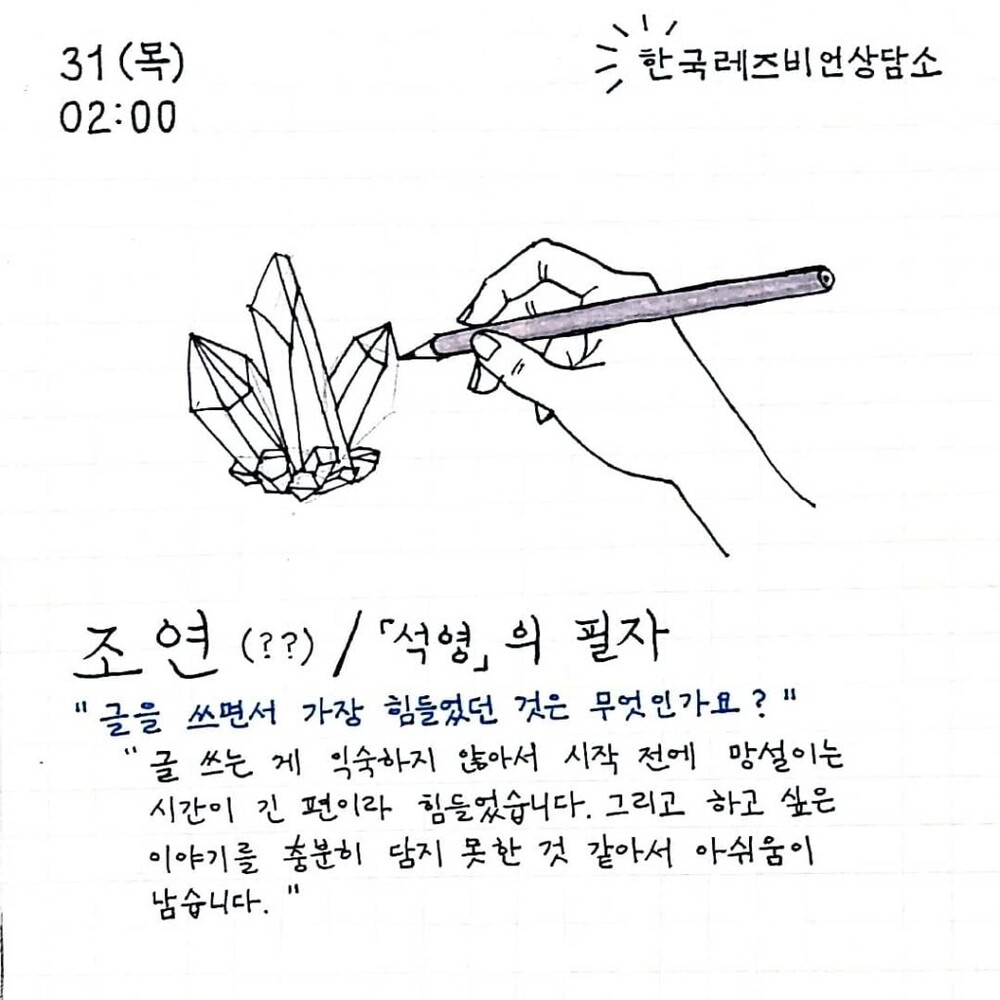 31(목)
02:00
한국레즈비언상담소
조연(??)/「석영」의 필자
"글을 쓰면서 가장 힘들었던 것은 무엇인가요?"
"글 쓰는 게 익숙하지 않아서 시작 전에 망설이는
시간이 긴 편이라 힘들었습니다. 그리고 하고 싶은
이야기를 충분히 담지 못한 것 같아서 아쉬움이
남습니다."